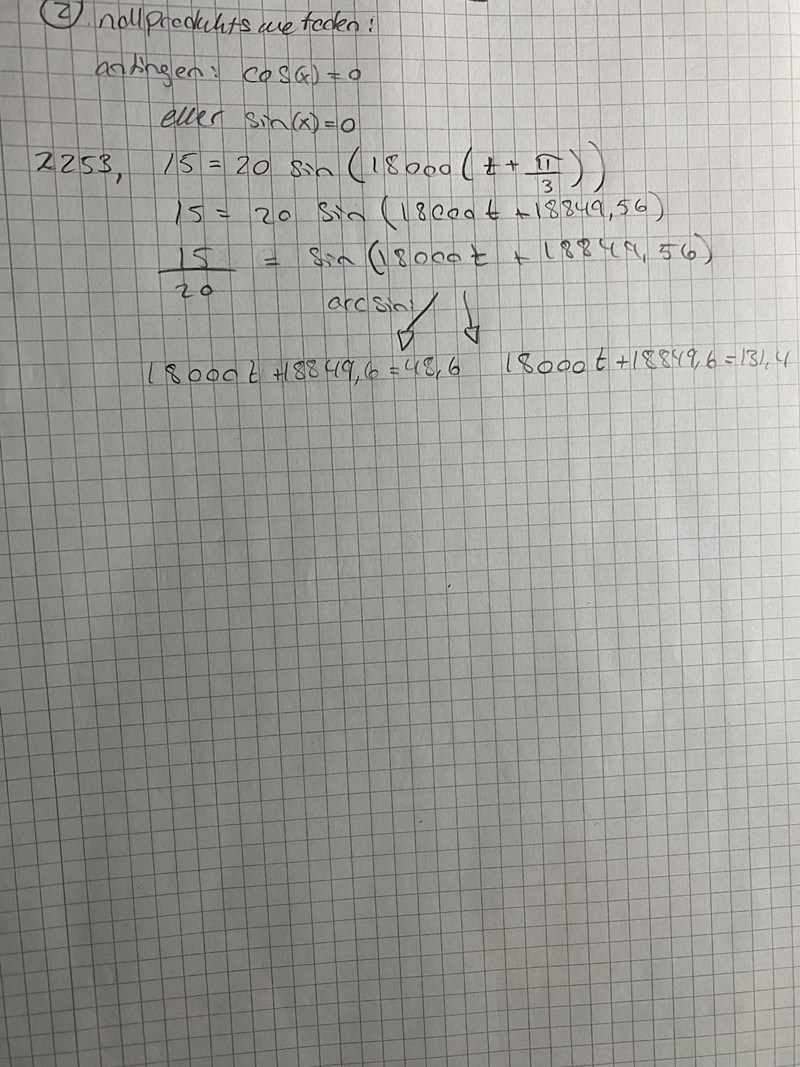 ② nollproduktsmetoden:
antingen: cos(x)=0
eller sin(x)=0
2253, 15 = 20 sin (18000(t + π/3))
15 = 20 sin (18000t +18849,56)
15/20 = sin (18000t + 18849,56)
arcsin
18000t +18849,6 =48,6 18000t +18849,6 =131,4